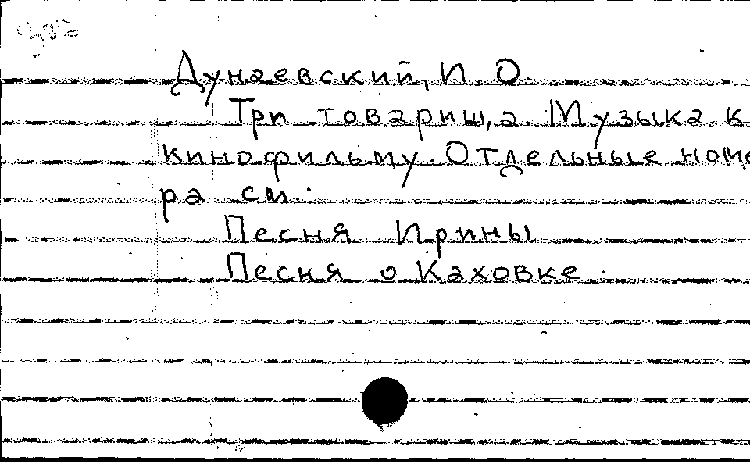 Дунаевский, И. О.
Три товарища. Музыка к
кинофильму. Отдельные номе
ра см.
Песня Ирины
Песня о Каховке.